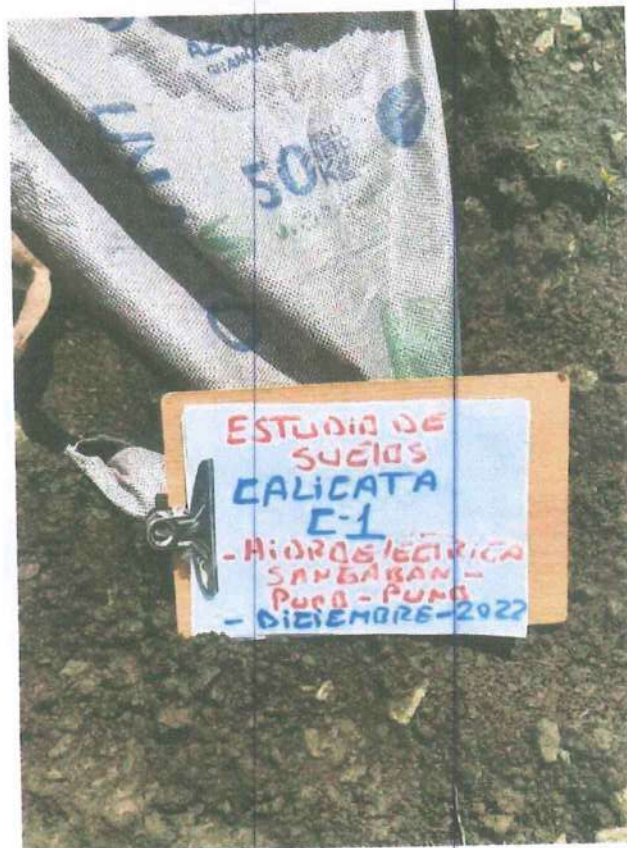 AZÚCAR
50
KG
ESTUDIO DE
SUELOS
CALICATA
C-1
- HIDROELÉCTRICA
SANGABAN -
PUNO - PUNO
- DICIEMBRE - 2022